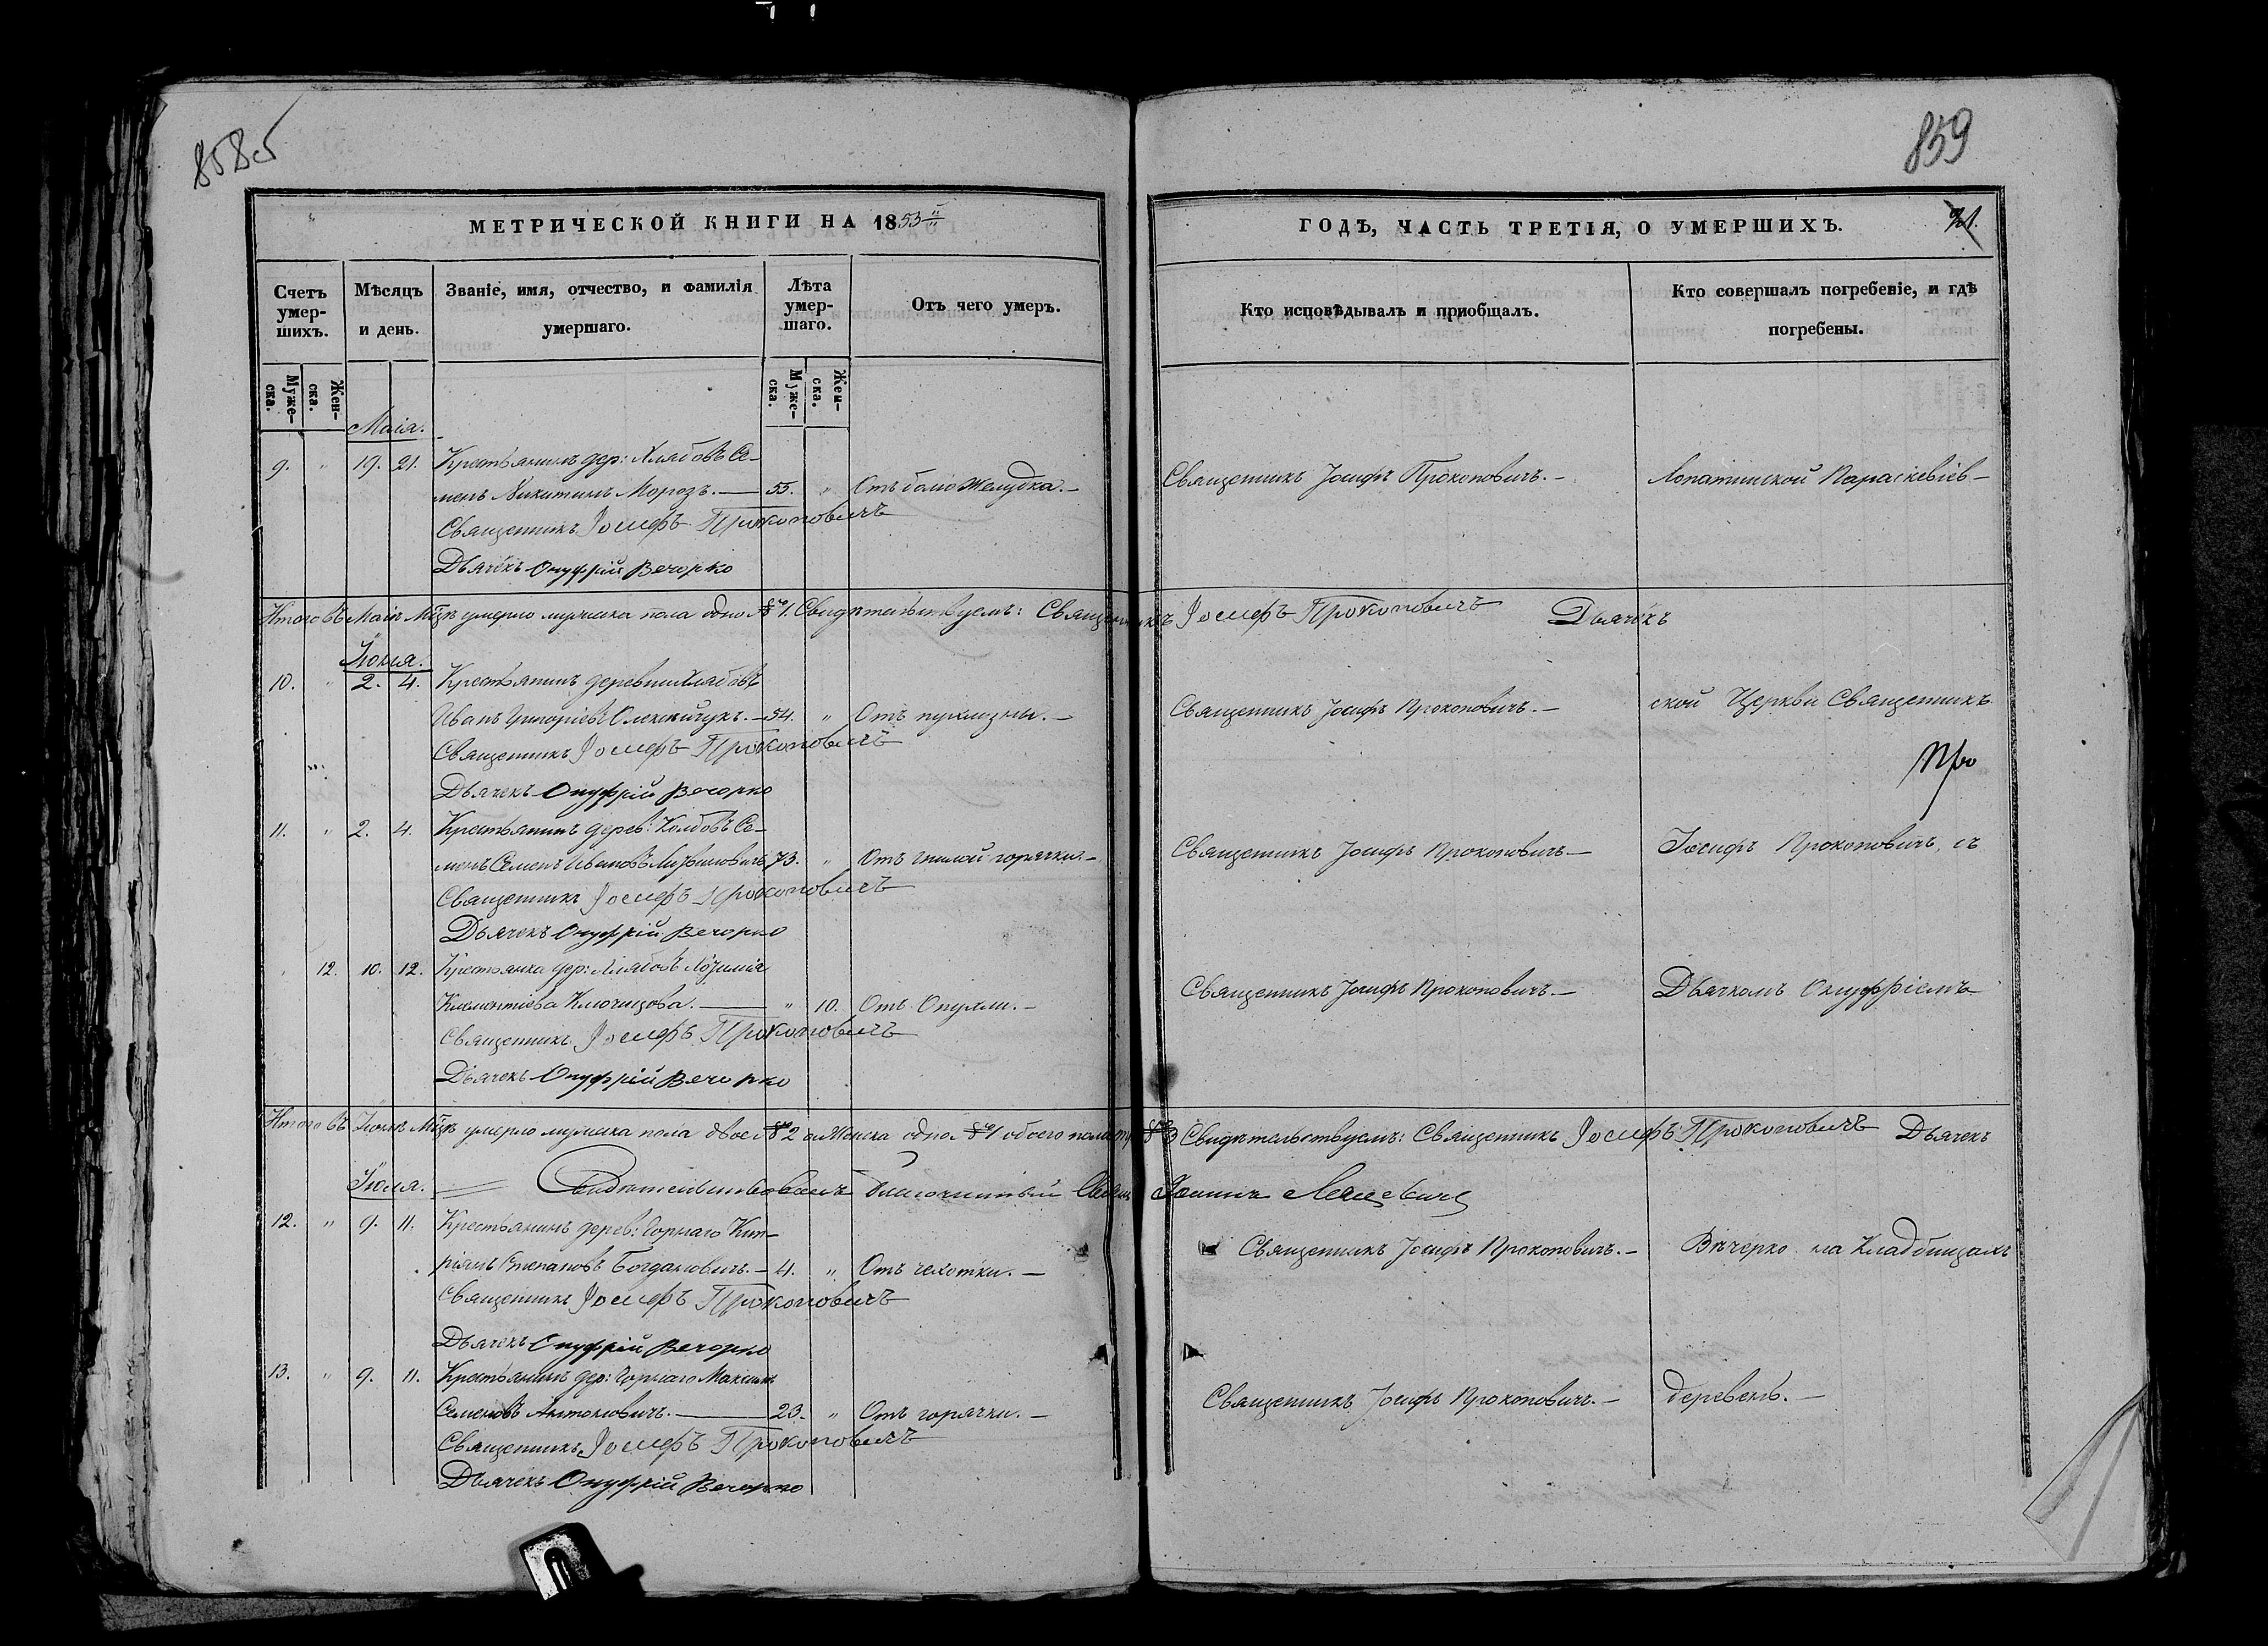 858об
859
МЕТРИЧЕСКОЙ КНИГИ НА 1853
ГОДЪ, ЧАСТЬ ТРЕТІЯ, О УМЕРШИХЪ.
Счетъ умер-шихъ.
Мѣсяцъ и день.
Званіе, имя, отчество, и фамилія умершаго.
Лѣта умер-шаго.
Отъ чего умеръ.
Кто исповѣдывалъ и пріобщалъ.
Кто совершалъ погребеніе, и гдѣ погребены.
Муже-ска.
Жен-ска.
Муже-ска.
Жен-ска.
Маія.
9. " 19. 21. Крестьянинъ дер: Хлябовъ Се-
менъ Никитинъ Морозъ. — 55. " Отъ боли Желудка. —
Священникъ Іосифъ Прокоповичъ. —
Лопатинской Параскевіев-
Священникъ Іосифъ Прокоповичъ
Дьячекъ Онуфрій Вечорко
Итого въ Маіѣ Мцѣ умерло мужеска пола одно 1. Свидѣтельствуемъ: Священникъ Іосифъ Прокоповичъ Дьячекъ
Іюня.
10. " 2. 4. Крестьянинъ деревни Хлябовъ
Иванъ Григоріевъ Олексійчукъ. — 54. " Отъ пухлизны. —
Священникъ Іосифъ Прокоповичъ. —
ской Церкви Священникъ
Священникъ Іосифъ Прокоповичъ
Про
Дьячекъ Онуфрій Вечорко
11. " 2. 4. Крестьянинъ дерев: Се-
менъ Семенъ Ивановъ 73. " Отъ гнилой горячки —
Священникъ Іосифъ Прокоповичъ —
Іосифъ Прокоповичъ, съ
Священникъ Іосифъ Прокоповичъ
Дьячекъ Онуфрій Вечорко
12. 10. 12. Крестьянка дер: Хлябовъ
Климентіева — " 10. Отъ Опухли. —
Священникъ Іосифъ Прокоповичъ. —
Дьячкомъ Онуфріемъ
Священникъ Іосифъ Прокоповичъ
Дьячекъ Онуфрій Вечорко
Итого въ Іюнѣ Мцѣ умерло мужеска пола двое 2 а Женска одно 1 обоего пола 3 Свидѣтельствуемъ: Священникъ Іосифъ Прокоповичъ Дьячекъ
Іюля. Свидѣтельствовалъ Благочинный Іоаннъ
12. " 9. 11. Крестьянинъ дерев: Горнаго Кип-
ріянъ Степановъ Богдановичъ. — 4. " Отъ чехотки. —
Священникъ Іосифъ Прокоповичъ. —
Вечерко на Кладбищахъ
Священникъ Іосифъ Прокоповичъ
Дьячекъ Онуфрій Вечорко
13. " 9. 11. Крестьянинъ дер: Горнаго Максимъ
Семеновъ Антоновичъ. — 23. " Отъ горячки. —
Священникъ Іосифъ Прокоповичъ. —
деревень. —
Священникъ Іосифъ Прокоповичъ
Дьячекъ Онуфрій Вечорко